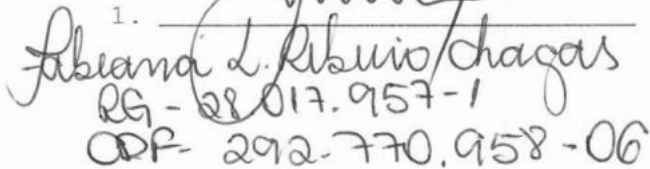 1.
Fabiana L. Ribeiro Chagas
RG - 28.017.957-1
CPF - 292.770.958-06